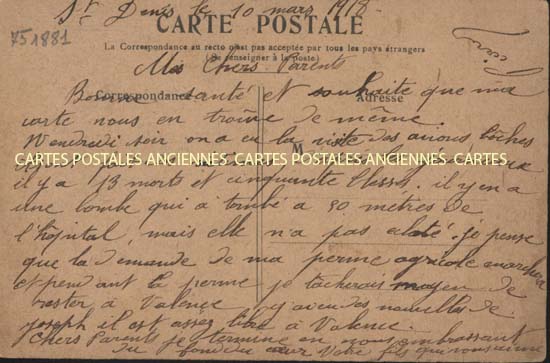 St Denis le 10 mars 1918
CARTE POSTALE
751881
La Correspondance au recto n'est pas acceptée par tous les pays étrangers
(Se renseigner à la poste)
Mes Chers Parents
Correspondance Adresse
Bonne santé et souhaite que ma
carte vous en trouve de même.
Vendredi soir on a eu la visite des avions boches
M
CARTES POSTALES ANCIENNES CARTES POSTALES ANCIENNES CARTES
il y a 13 morts et cinquante blessés. il y en a
une bombe qui a tombé a 50 mètres de
l'hopital, mais elle n'a pas éclaté. je pense
que la demande de ma perme agricole marchera
et pendant la perme je tacherais moyen de
rester a Valence j'ai eu des nouvelles de
joseph il est assez libre à Valence.
Chers Parents je termine en vous embrassant
du fond du cœur Votre fils